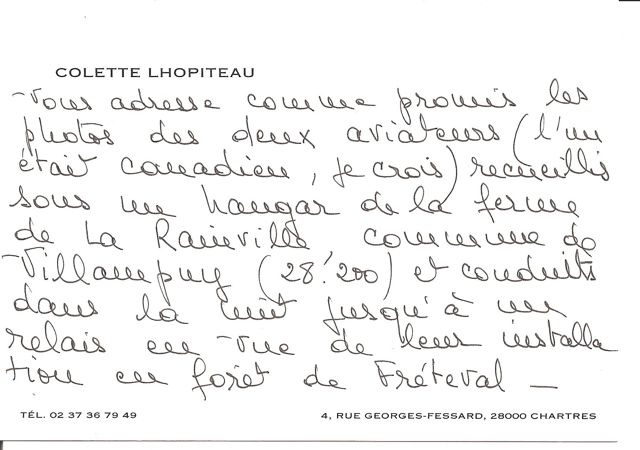 COLETTE LHOPITEAU
Vous adresse comme promis les
photos des deux aviateurs (l'un
était canadien, je crois) recueillis
sous un hangar de la ferme
de La Raineville commune de
Villampuy (28.200) et conduits
dans la nuit jusqu'à un
relais en vue de leur installa
tion en forêt de Fréteval _
TÉL. 02 37 36 79 49
4, RUE GEORGES-FESSARD, 28000 CHARTRES